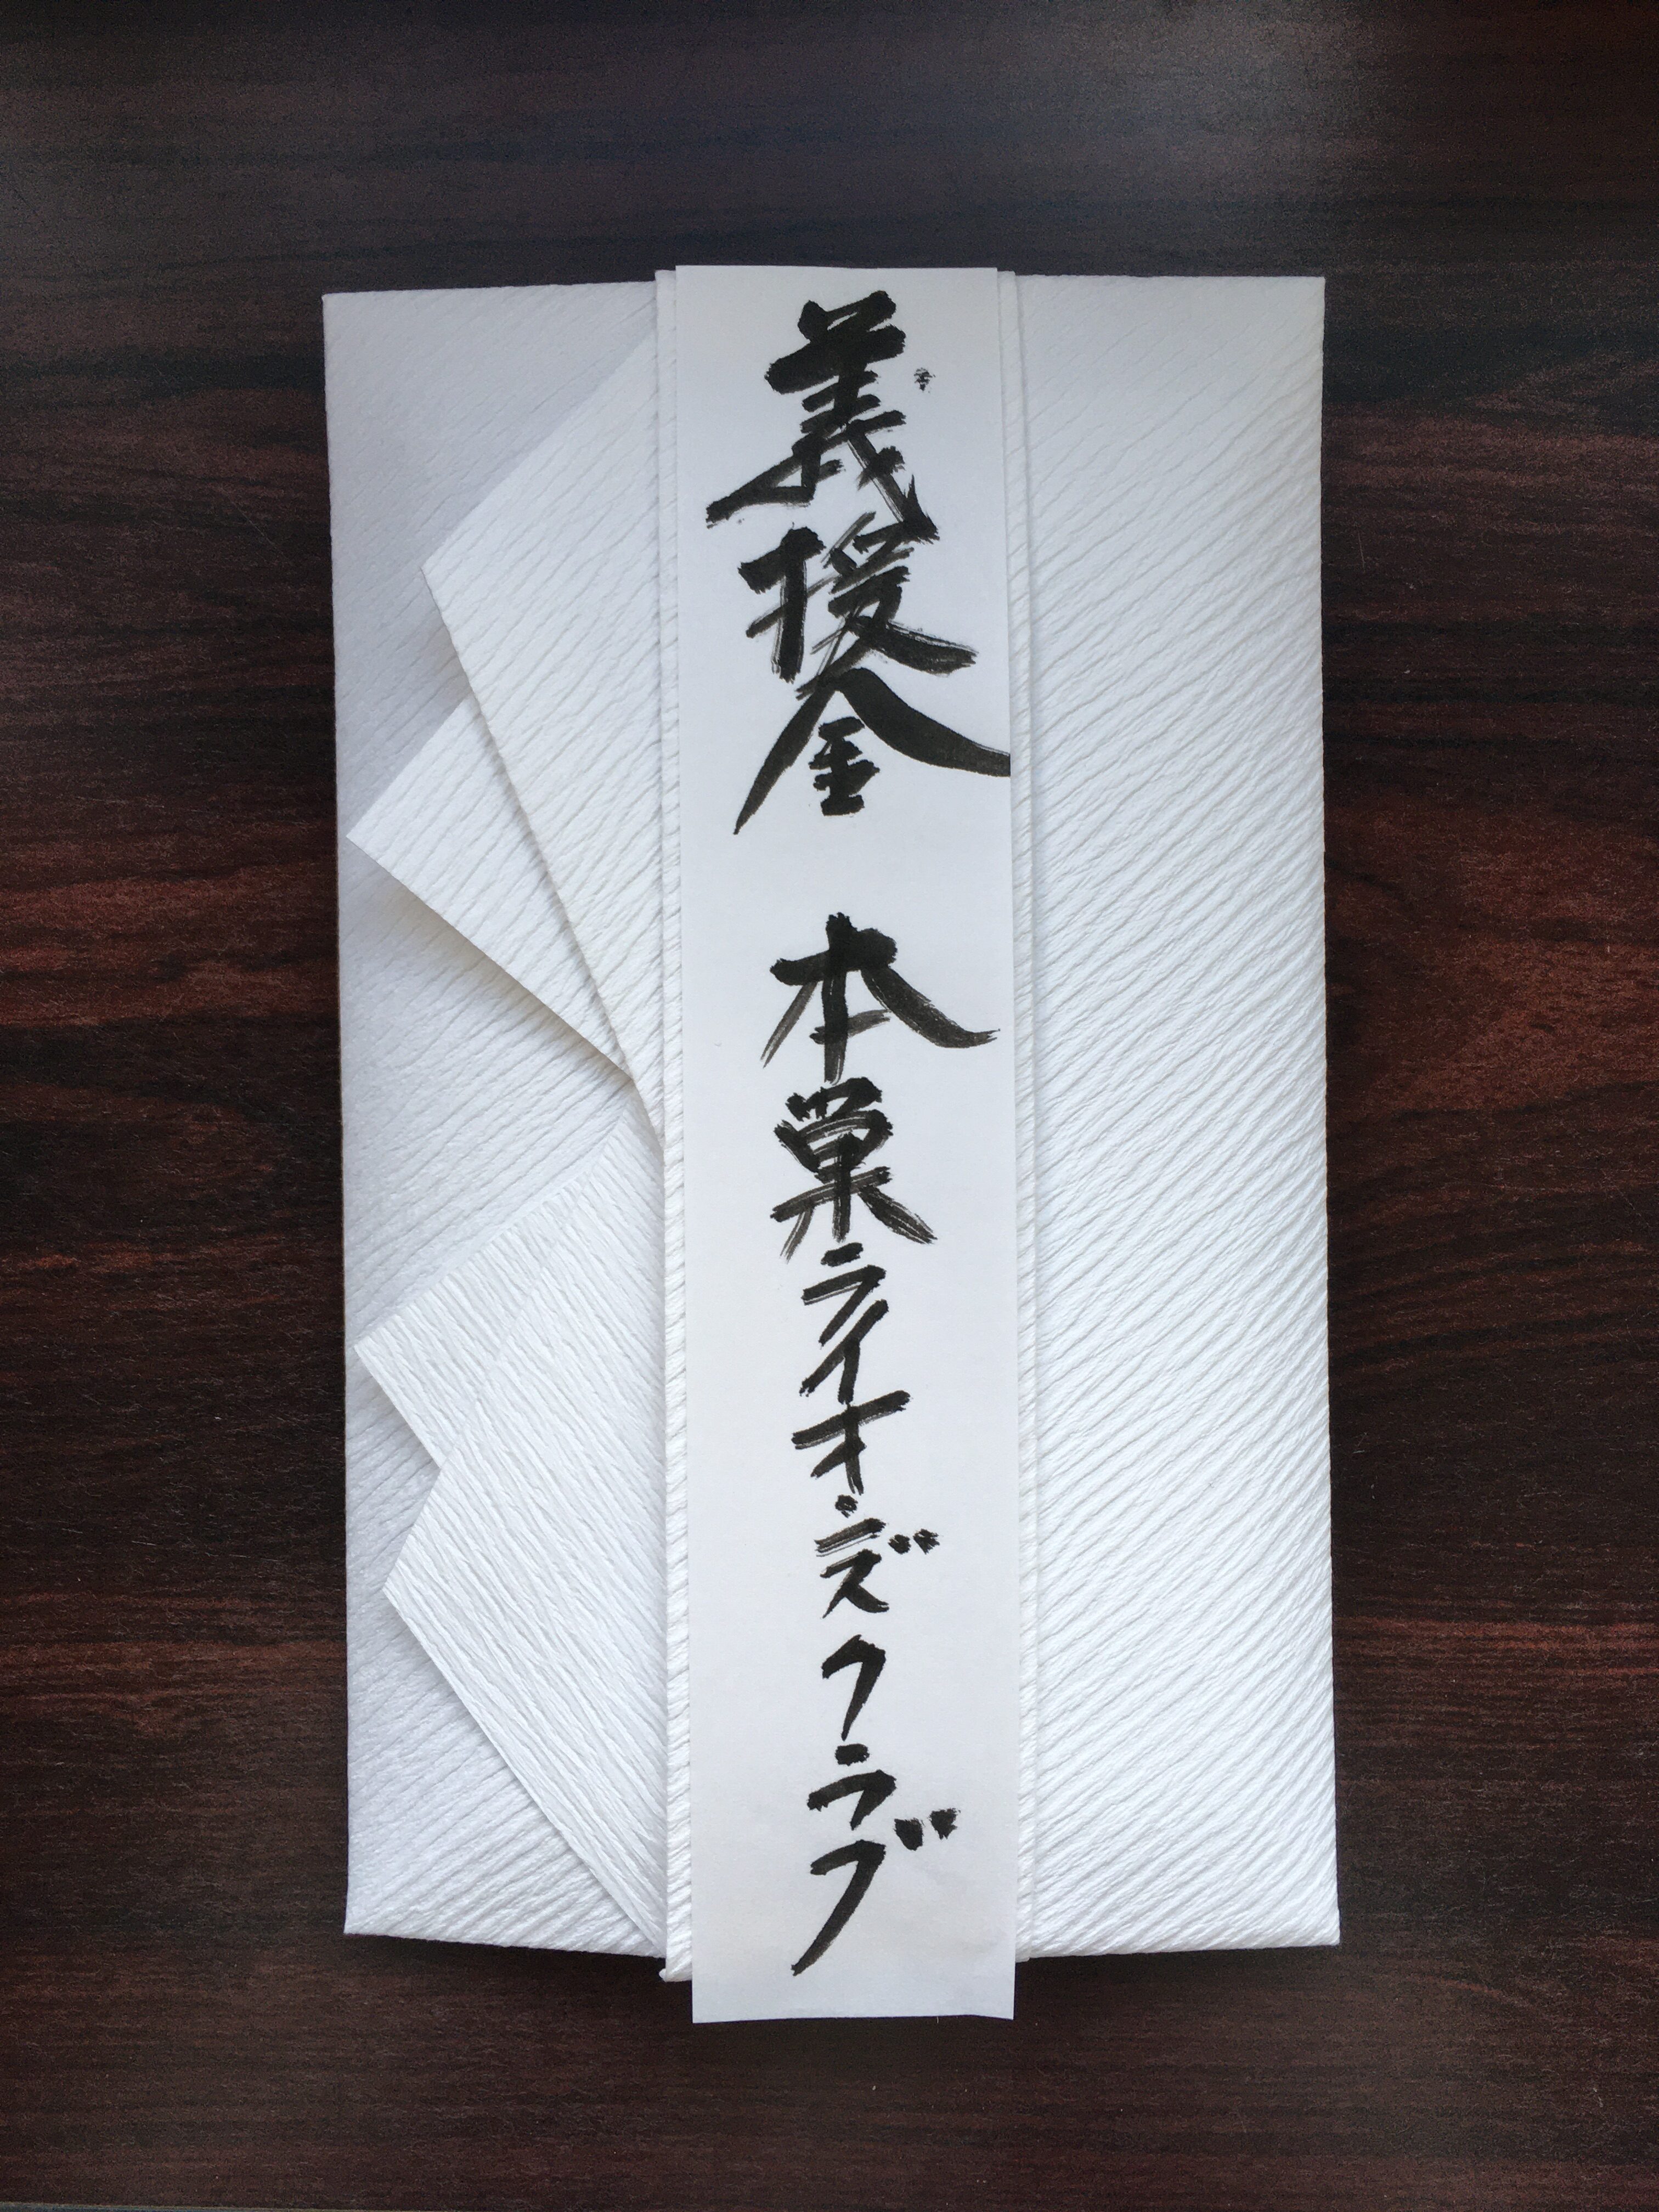 義援金 本巣ライオンズクラブ